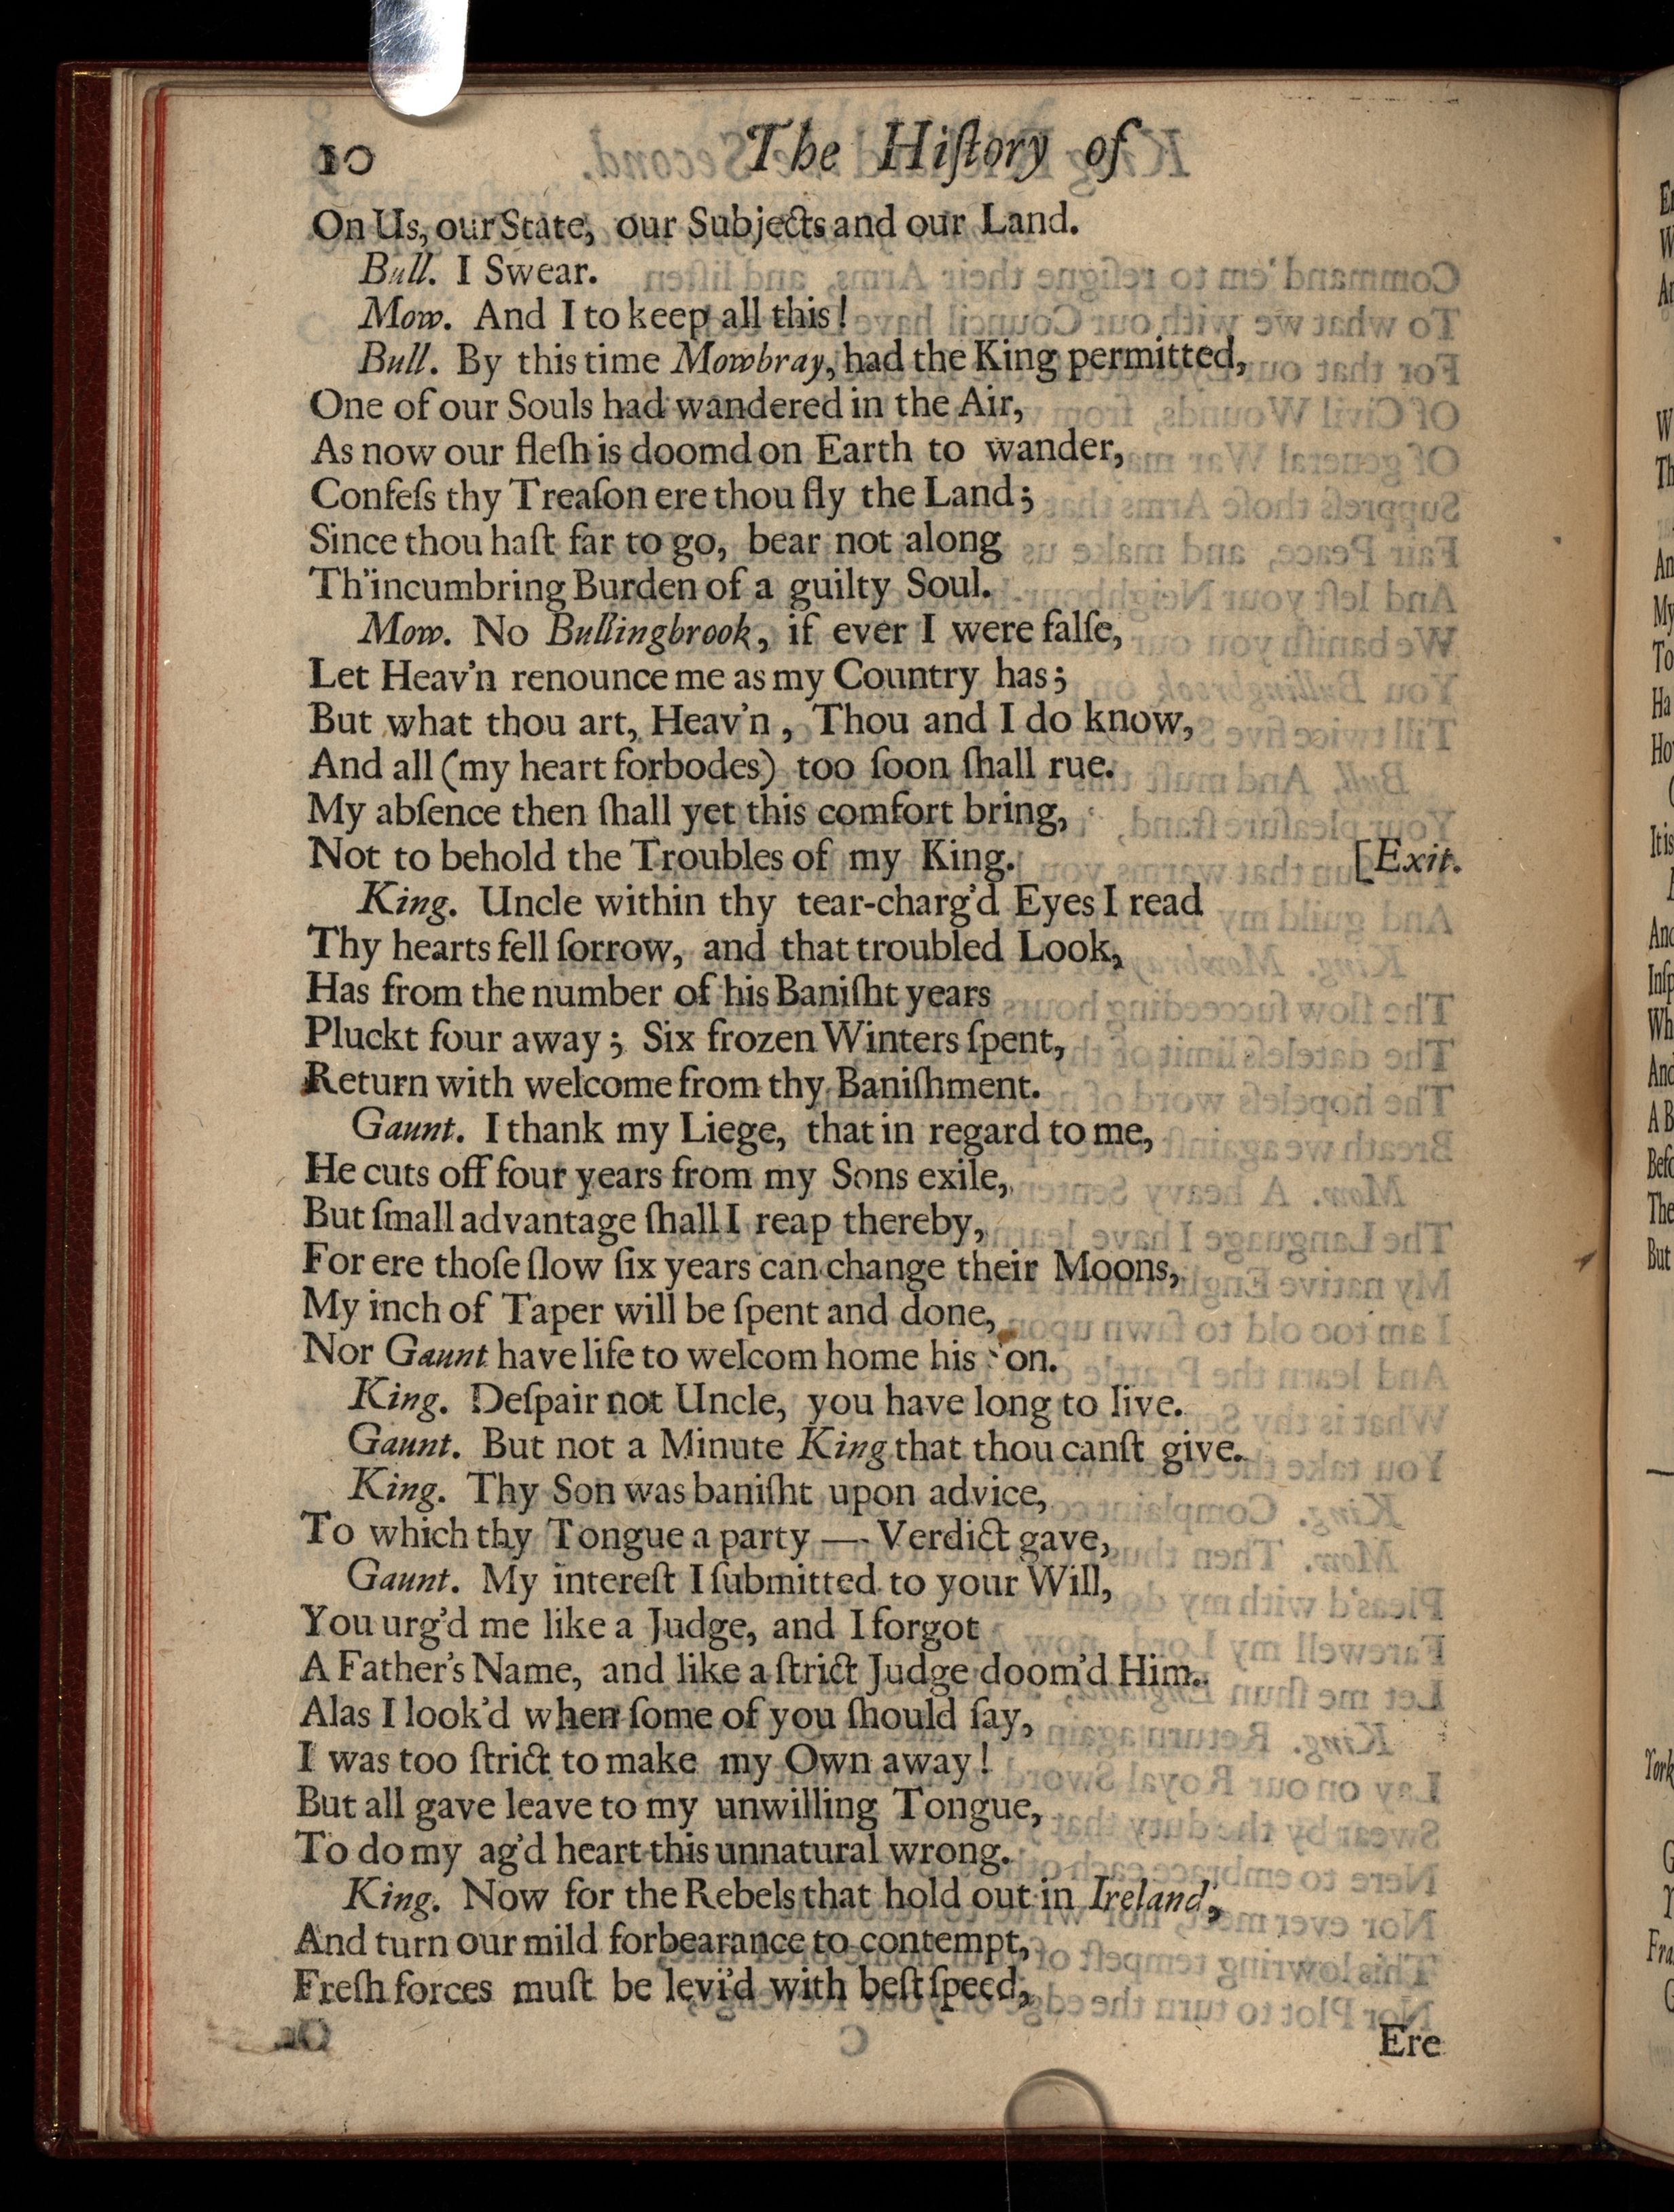 10 The Hiſtory of
On Us, our State, our Subjects and our Land.
Bull. I Swear.
Mow. And I to keep all this!
Bull. By this time Mowbray, had the King permitted,
One of our Souls had wandered in the Air,
As now our fleſh is doomd on Earth to wander,
Confeſs thy Treaſon ere thou fly the Land;
Since thou haſt far to go, bear not along
Th'incumbring Burden of a guilty Soul.
Mow. No Bullingbrook, if ever I were falſe,
Let Heav'n renounce me as my Country has;
But what thou art, Heav'n, Thou and I do know,
And all (my heart forbodes) too ſoon ſhall rue.
My abſence then ſhall yet this comfort bring,
Not to behold the Troubles of my King. [Exit.
King. Uncle within thy tear-charg'd Eyes I read
Thy hearts fell ſorrow, and that troubled Look,
Has from the number of his Baniſht years
Pluckt four away; Six frozen Winters ſpent,
Return with welcome from thy Baniſhment.
Gaunt. I thank my Liege, that in regard to me,
He cuts off four years from my Sons exile,
But ſmall advantage ſhall I reap thereby,
For ere thoſe ſlow ſix years can change their Moons,
My inch of Taper will be ſpent and done,
Nor Gaunt have life to welcom home his Son.
King. Deſpair not Uncle, you have long to live.
Gaunt. But not a Minute King that thou canſt give.
King. Thy Son was baniſht upon advice,
To which thy Tongue a party — Verdict gave,
Gaunt. My intereſt I ſubmitted to your Will,
You urg'd me like a Judge, and I forgot
A Father's Name, and like a ſtrict Judge doom'd Him.
Alas I look'd when ſome of you ſhould ſay,
I was too ſtrict to make my Own away!
But all gave leave to my unwilling Tongue,
To do my ag'd heart this unnatural wrong.
King. Now for the Rebels that hold out in Ireland,
And turn our mild forbearance to contempt,
Freſh forces muſt be levi'd with beſt ſpeed,
Ere